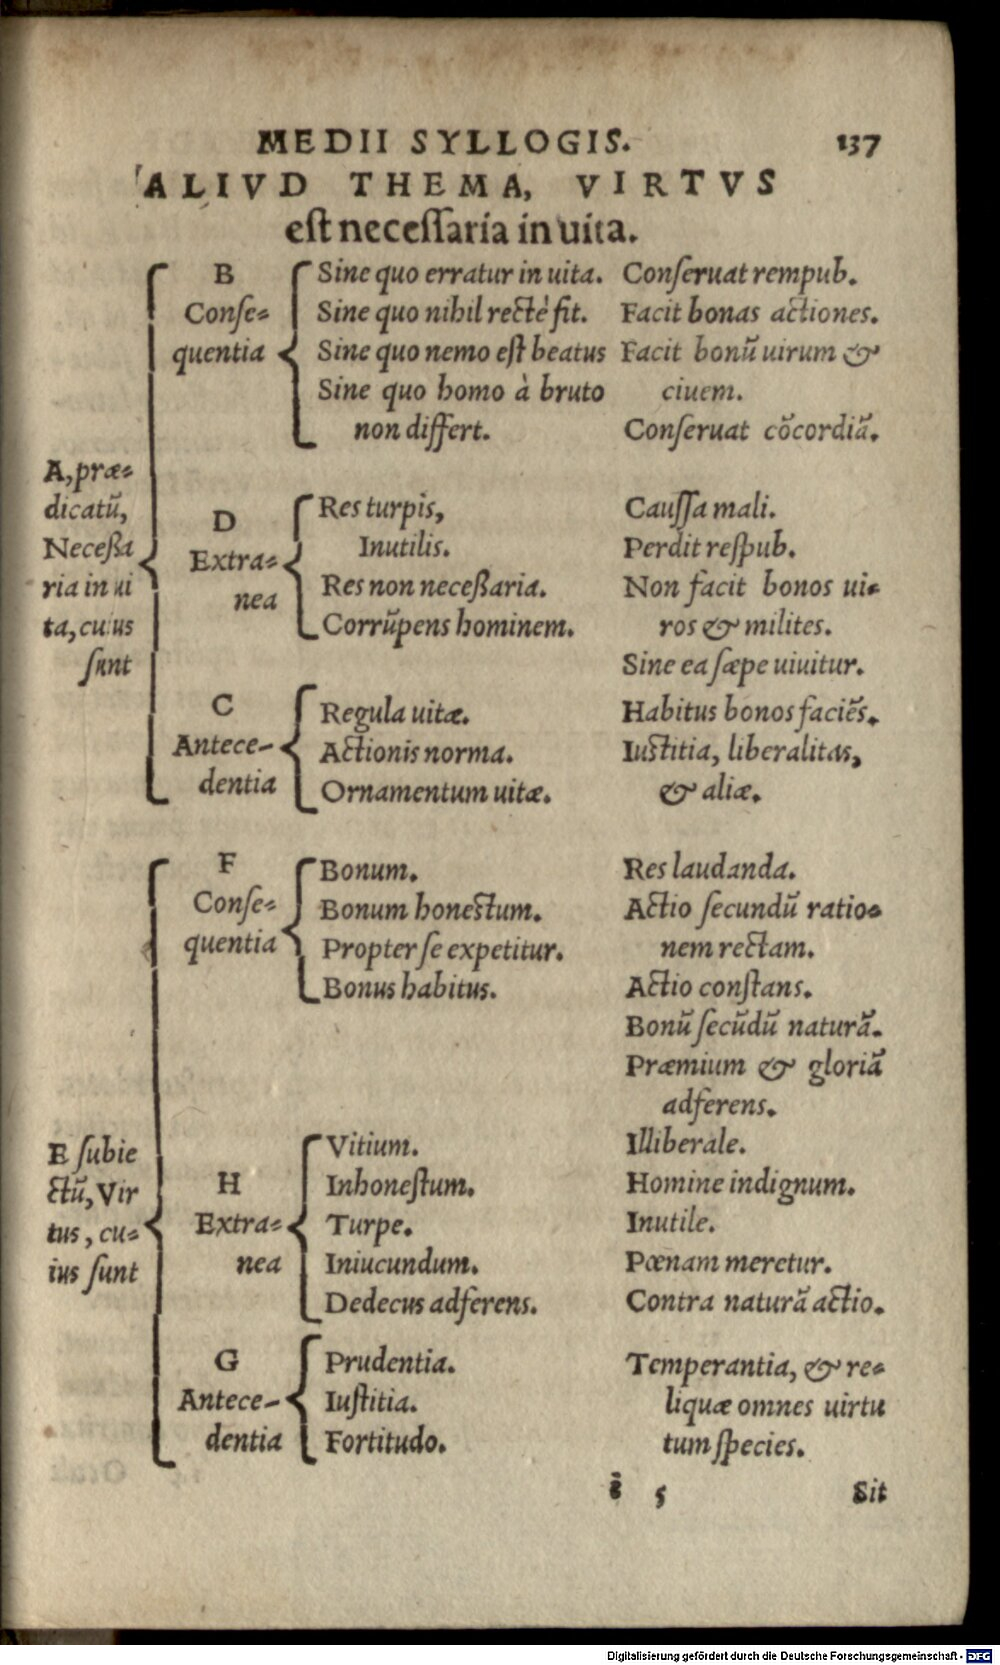 MEDII SYLLOGIS. 137
ALIVD THEMA, VIRTVS
est necessaria in uita.
A, præ-
dicatũ,
Necessa
ria in ui
ta, cuius
sunt
B
Conse-
quentia
Sine quo erratur in uita.
Sine quo nihil rectè fit.
Sine quo nemo est beatus
Sine quo homo à bruto
non differt.
Conseruat rempub.
Facit bonas actiones.
Facit bonũ uirum &
ciuem.
Conseruat cõcordiã.
D
Extra-
nea
Res turpis,
Inutilis.
Res non necessaria.
Corrũpens hominem.
Caussa mali.
Perdit respub.
Non facit bonos ui-
ros & milites.
Sine ea sæpe uiuitur.
C
Antece-
dentia
Regula uitæ.
Actionis norma.
Ornamentum uitæ.
Habitus bonos faciẽs.
Iustitia, liberalitas,
& aliæ.
E subie
ctũ, Vir
tus, cu-
ius sunt
F
Conse-
quentia
Bonum.
Bonum honestum.
Propter se expetitur.
Bonus habitus.
Res laudanda.
Actio secundũ ratio-
nem rectam.
Actio constans.
Bonũ secũdũ naturã.
Præmium & gloriã
adferens.
H
Extra-
nea
Vitium.
Inhonestum.
Turpe.
Iniucundum.
Dedecus adferens.
Illiberale.
Homine indignum.
Inutile.
Pœnam meretur.
Contra naturã actio.
G
Antece-
dentia
Prudentia.
Iustitia.
Fortitudo.
Temperantia, & re-
liquæ omnes uirtu
tum species.
5 Sit
Digitalisierung gefördert durch die Deutsche Forschungsgemeinschaft - DFG